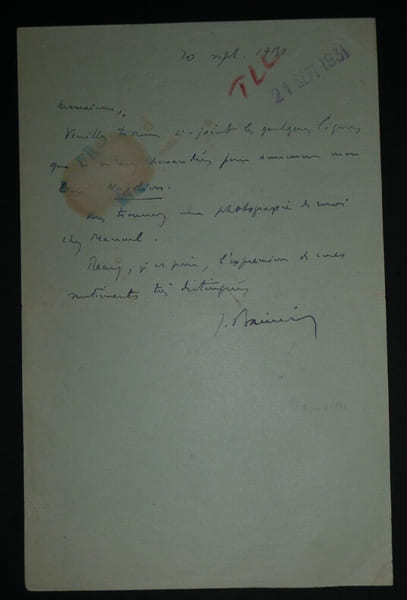 20 sept. 1931
TLC
21 SEPT 1931
Monsieur,
Veuillez trouver ci-joint les quelques lignes
que vous m'avez demandées pour annoncer mon
livre Napoléon.
Vous trouverez une photographie de moi
chez Manuel.
Recevez, je vous prie, l'expression de mes
sentiments très distingués
J. Bainville